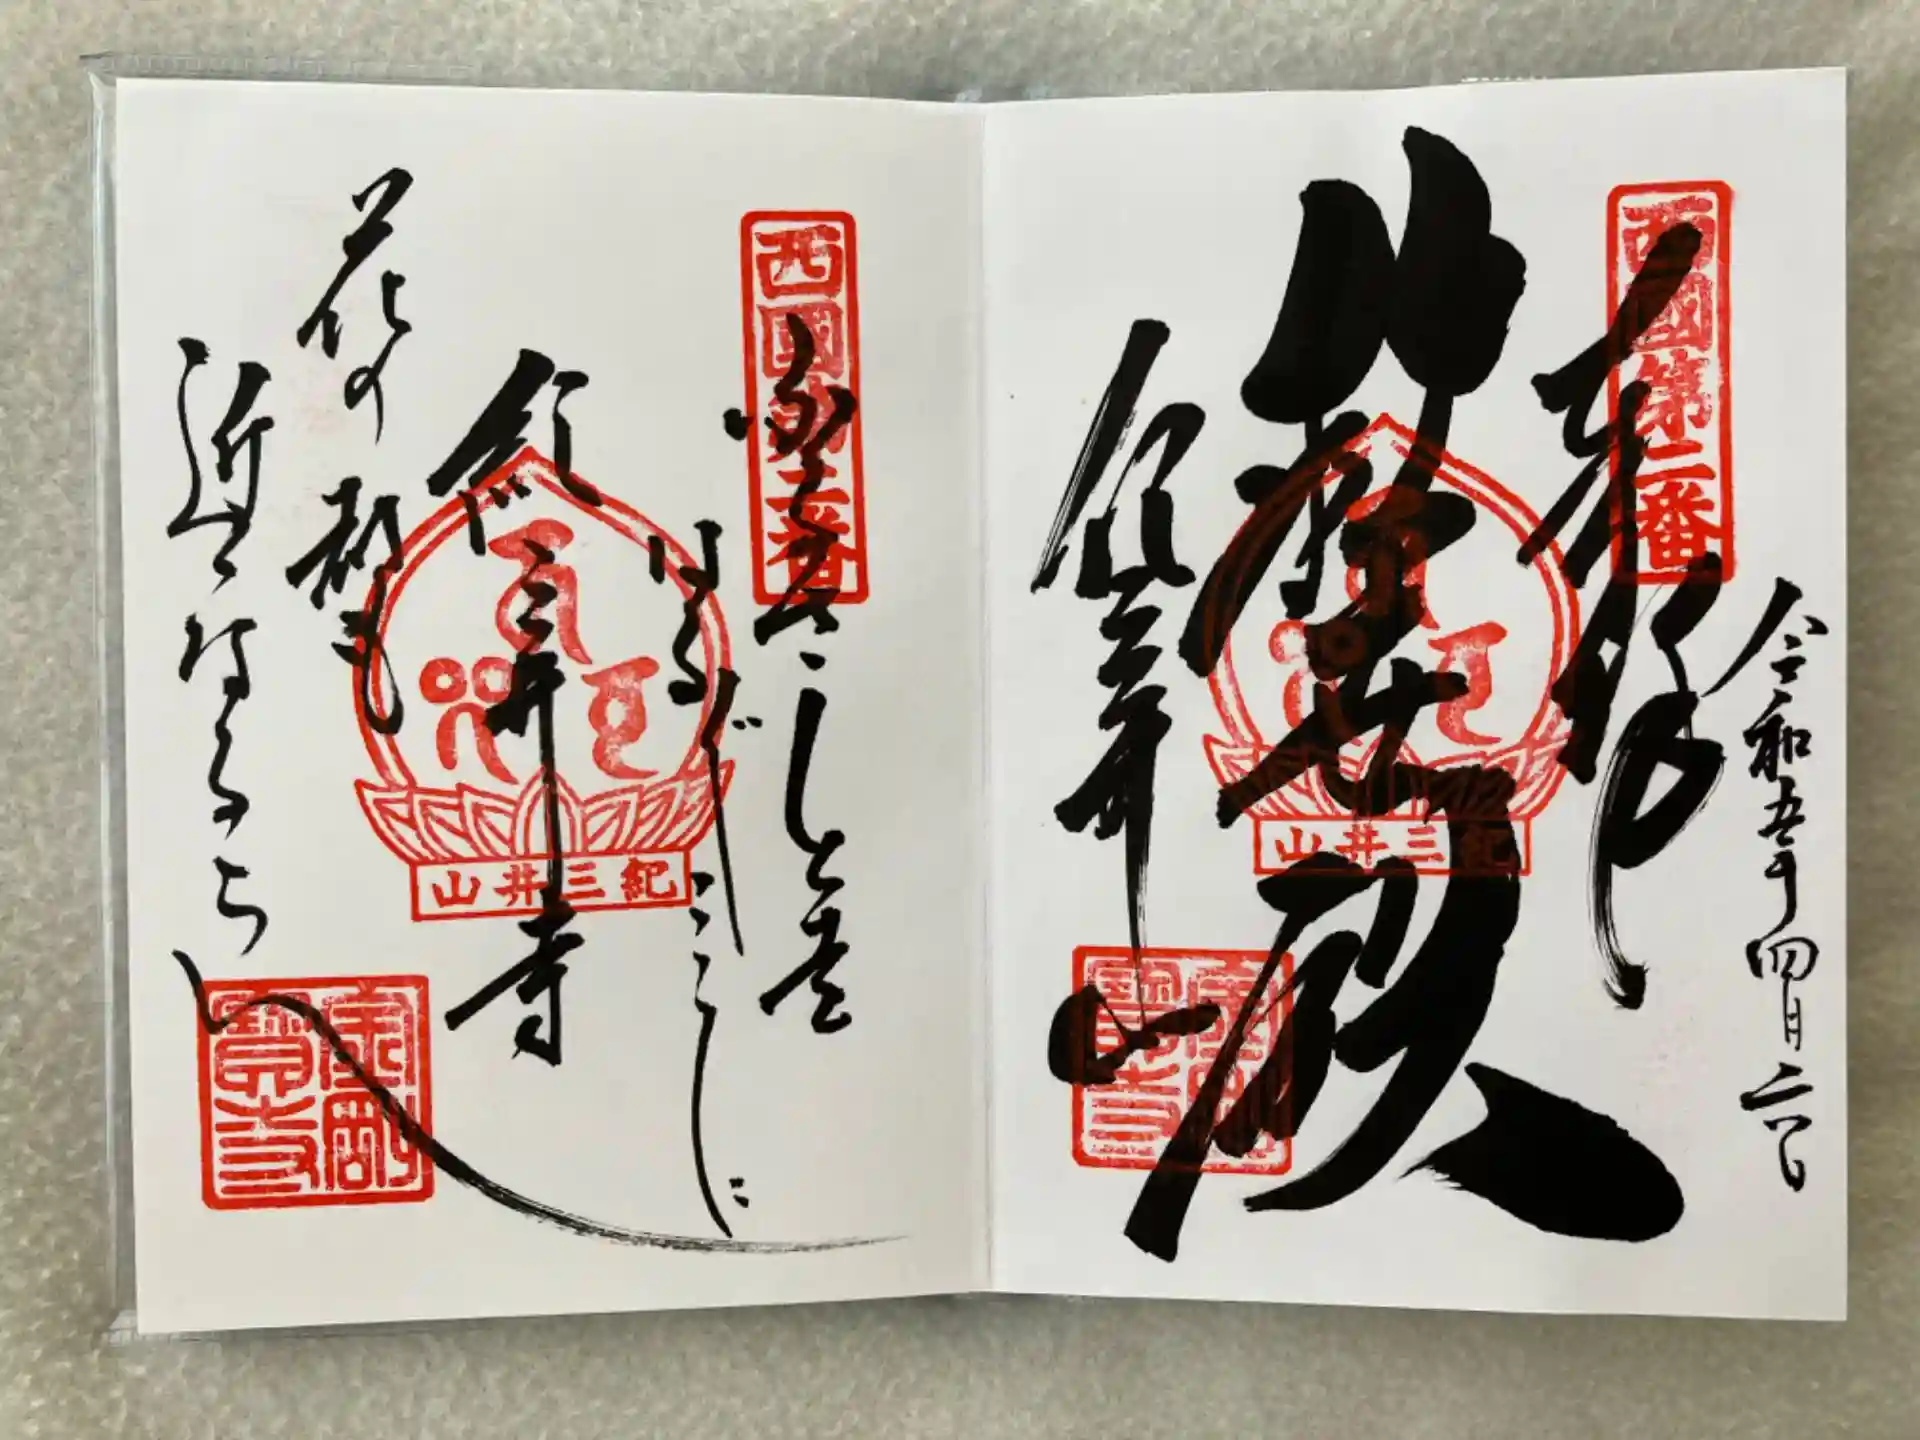 西國第二番
奉拝
令和五年四月六日
救世殿
紀三井山
紀三井山
金剛寶寺
西國第二番
ふるさとを
はる〴〵ここに
紀三井寺
花の都も
近くなるらん
紀三井山
金剛寶寺